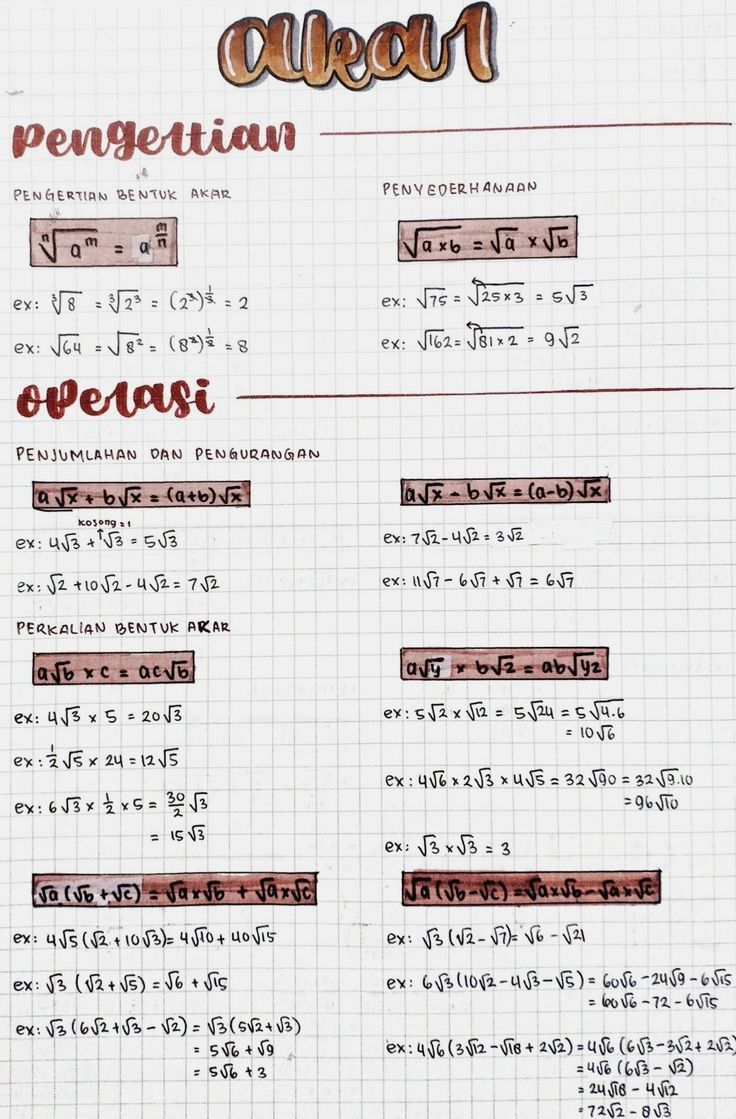 akar
Pengertian
PENGERTIAN BENTUK AKAR
ⁿ√aᵐ = a^(m/n)
ex: ³√8 = ³√2³ = (2³)^(1/3) = 2
ex: √64 = √8² = (8²)^(1/2) = 8
PENYEDERHANAAN
√(a×b) = √a × √b
ex: √75 = √(25×3) = 5√3
ex: √162 = √(81×2) = 9√2
operasi
PENJUMLAHAN DAN PENGURANGAN
a√x + b√x = (a+b)√x
kosong = 1
ex: 4√3 + √3 = 5√3
ex: √2 + 10√2 - 4√2 = 7√2
a√x - b√x = (a-b)√x
ex: 7√2 - 4√2 = 3√2
ex: 11√7 - 6√7 + √7 = 6√7
PERKALIAN BENTUK AKAR
a√b × c = ac√b
ex: 4√3 × 5 = 20√3
ex: 1/2 √5 × 24 = 12√5
ex: 6√3 × 1/2 × 5 = 30/2 √3
= 15√3
a√y × b√z = ab√yz
ex: 5√2 × √12 = 5√24 = 5√(4.6)
= 10√6
ex: 4√6 × 2√3 × 4√5 = 32√90 = 32√(9.10)
= 96√10
ex: √3 × √3 = 3
√a (√b + √c) = √a×√b + √a×√c
ex: 4√5 (√2 + 10√3) = 4√10 + 40√15
ex: √3 (√2 + √5) = √6 + √15
ex: √3 (6√2 + √3 - √2) = √3 (5√2 + √3)
= 5√6 + √9
= 5√6 + 3
√a (√b - √c) = √a×√b - √a×√c
ex: √3 (√2 - √7) = √6 - √21
ex: 6√3 (10√2 - 4√3 - √5) = 60√6 - 24√9 - 6√15
= 60√6 - 72 - 6√15
ex: 4√6 (3√12 - √18 + 2√2) = 4√6 (6√3 - 3√2 + 2√2)
= 4√6 (6√3 - √2)
= 24√18 - 4√12
= 72√2 - 8√3